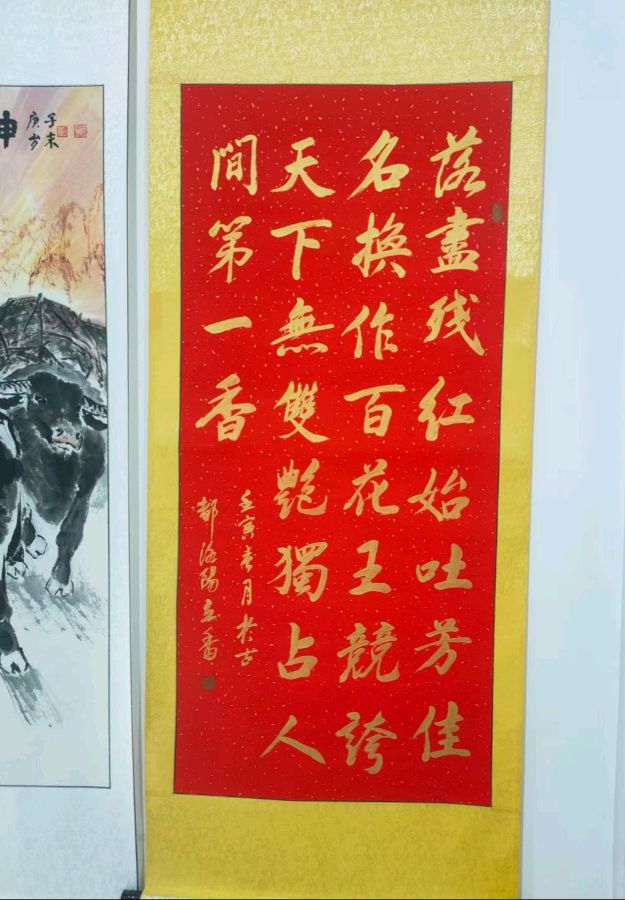 落盡残红始吐芳佳
名換作百花王競誇
天下無雙艷獨占人
間第一香
壬寅春月於古
都洛陽
庚子
岁末